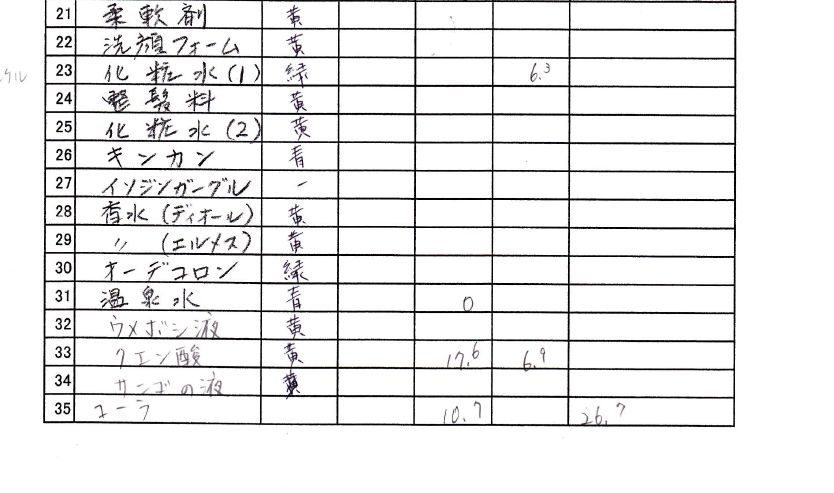 21 柔軟剤 黄
22 洗顔フォーム 黄
23 化粧水(1) 緑 6.3
24 整髪料 黄
25 化粧水(2) 黄
26 キンカン 青
27 イソジンガーグル －
28 香水(ディオール) 黄
29 〃 (エルメス) 黄
30 オーデコロン 緑
31 温泉水 青 0
32 ウメボシ液 黄
33 クエン酸 黄 17.6 6.9
34 液 黄
35 コーラ 10.7 26.7